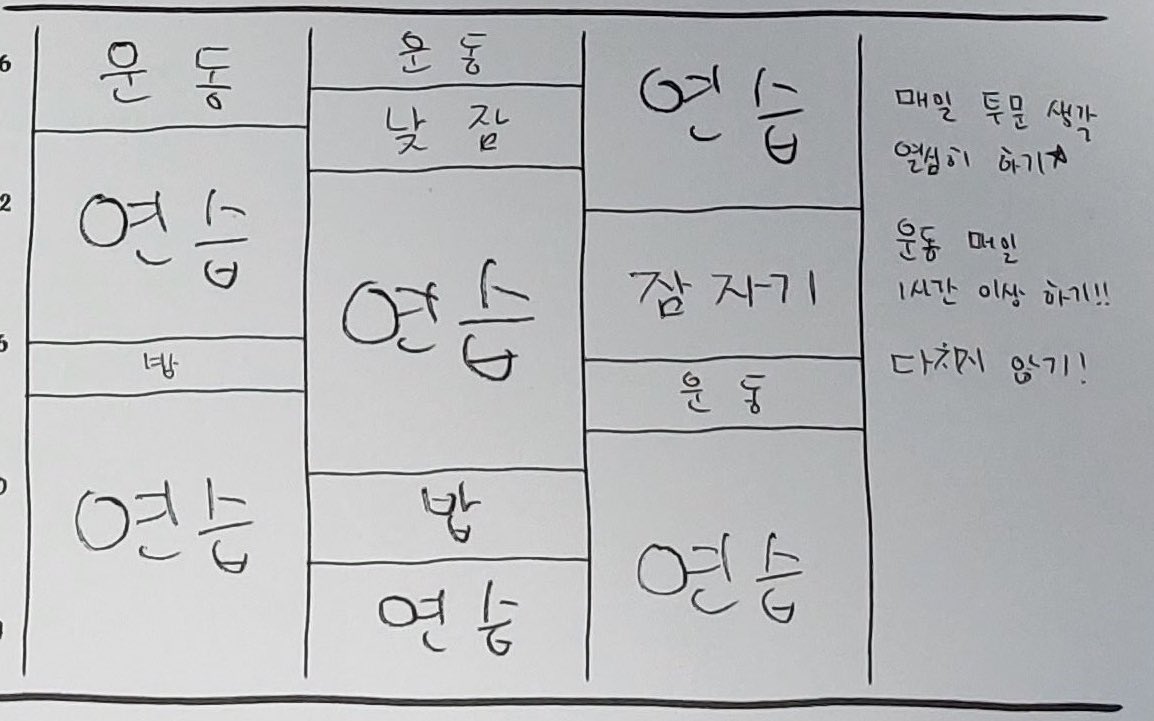 운동
연습
밥
연습
운동
낮잠
연습
밥
연습
연습
잠자기
운동
연습
매일 투문 생각
열심히 하기★
운동 매일
1시간 이상 하기!!
다치지 않기!